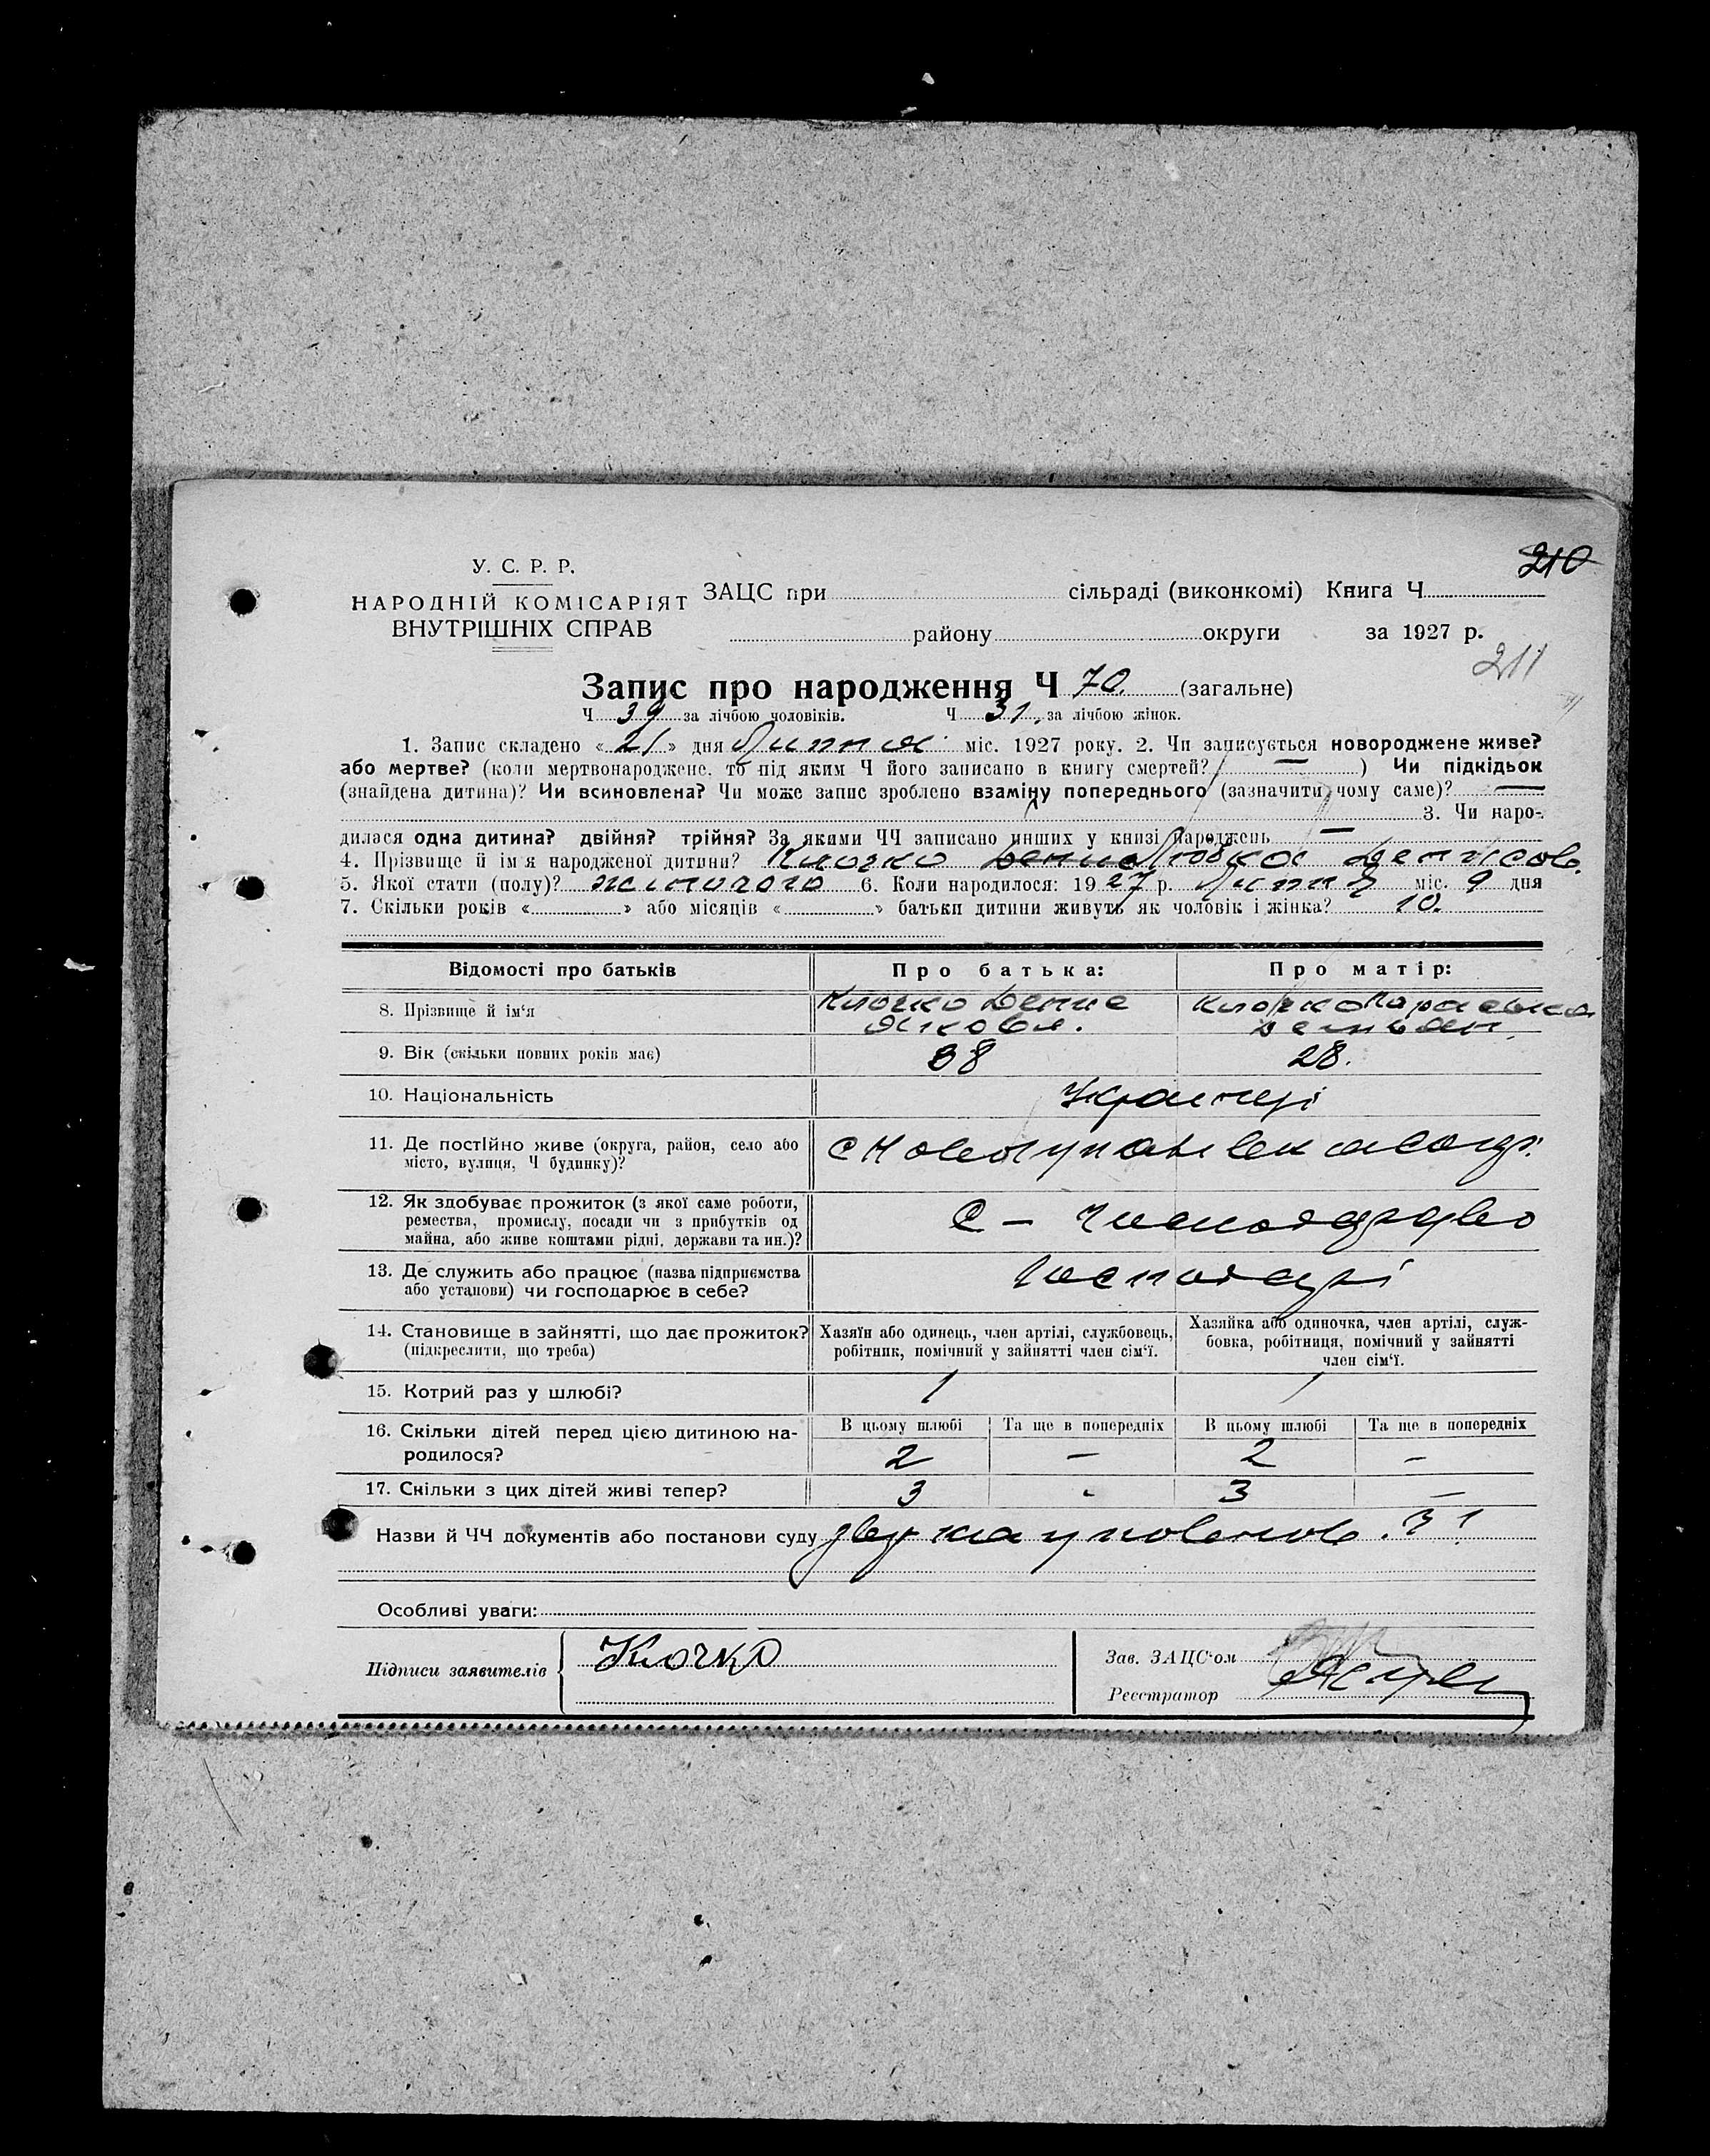 210
У. С. Р. Р.
НАРОДНІЙ КОМІСАРІЯТ
ВНУТРІШНІХ СПРАВ
ЗАЦС при сільраді (виконкомі) Книга Ч
району округи за 1927 р.
211
Запис про народження Ч 70. (загальне)
Ч 39 за лічбою чоловіків. Ч 31, за лічбою жінок.
1. Запис складено « 21 » дня Липня міс. 1927 року. 2. Чи записується новороджене живе?
або мертве? (коли мертвонароджене, то під яким Ч його записано в книгу смертей? — ) Чи підкідьок
(знайдена дитина)? Чи всиновлена? Чи може запис зроблено взаміну попереднього (зазначити, чому саме)? —
3. Чи наро-
дилася одна дитина? двійня? трійня? За якими ЧЧ записано инших у книзі народжень —
4. Прізвище й ім'я народженої дитини? Клочко Денис Любков Денисов.
5. Якої статі (полу)? жиночого 6. Коли народилося: 19 27 р. Липня міс. 9 дня
7. Скільки років « » або місяців « » батьки дитини живуть як чоловік і жінка? 10.
Відомості про батьків
Про батька:
Про матір:
8. Прізвище й ім'я
Клочко Денис
Яковл.
Клочко Параска
9. Вік (скільки повних років має)
38
28.
10. Національність
Українці
11. Де постійно живе (округа, район, село або
місто, вулиця, Ч будинку)?
12. Як здобуває прожиток (з якої саме роботи,
ремества, промислу, посади чи з прибутків од
майна, або живе коштами рідні, держави та ин.)?
С —
13. Де служить або працює (назва підприємства
або установи) чи господарює в себе?
Господарі
14. Становище в зайнятті, що дає прожиток?
(підкреслити, що треба)
Хазяїн або одинець, член артілі, службовець,
робітник, помічний у зайнятті член сім'ї.
Хазяйка або одиночка, член артілі, служ-
бовка, робітниця, помічний у зайнятті
член сім'ї.
15. Котрий раз у шлюбі?
1
1
16. Скільки дітей перед цією дитиною на-
родилося?
В цьому шлюбі
Та ще в попередніх
В цьому шлюбі
Та ще в попередніх
2 — 2 —
17. Скільки з цих дітей живі тепер?
3 - 3 —
Назви й ЧЧ документів або постанови суду
Особливі уваги:
Підписи заявителів
Клочко
Зав. ЗАЦС'ом
Реєстратор